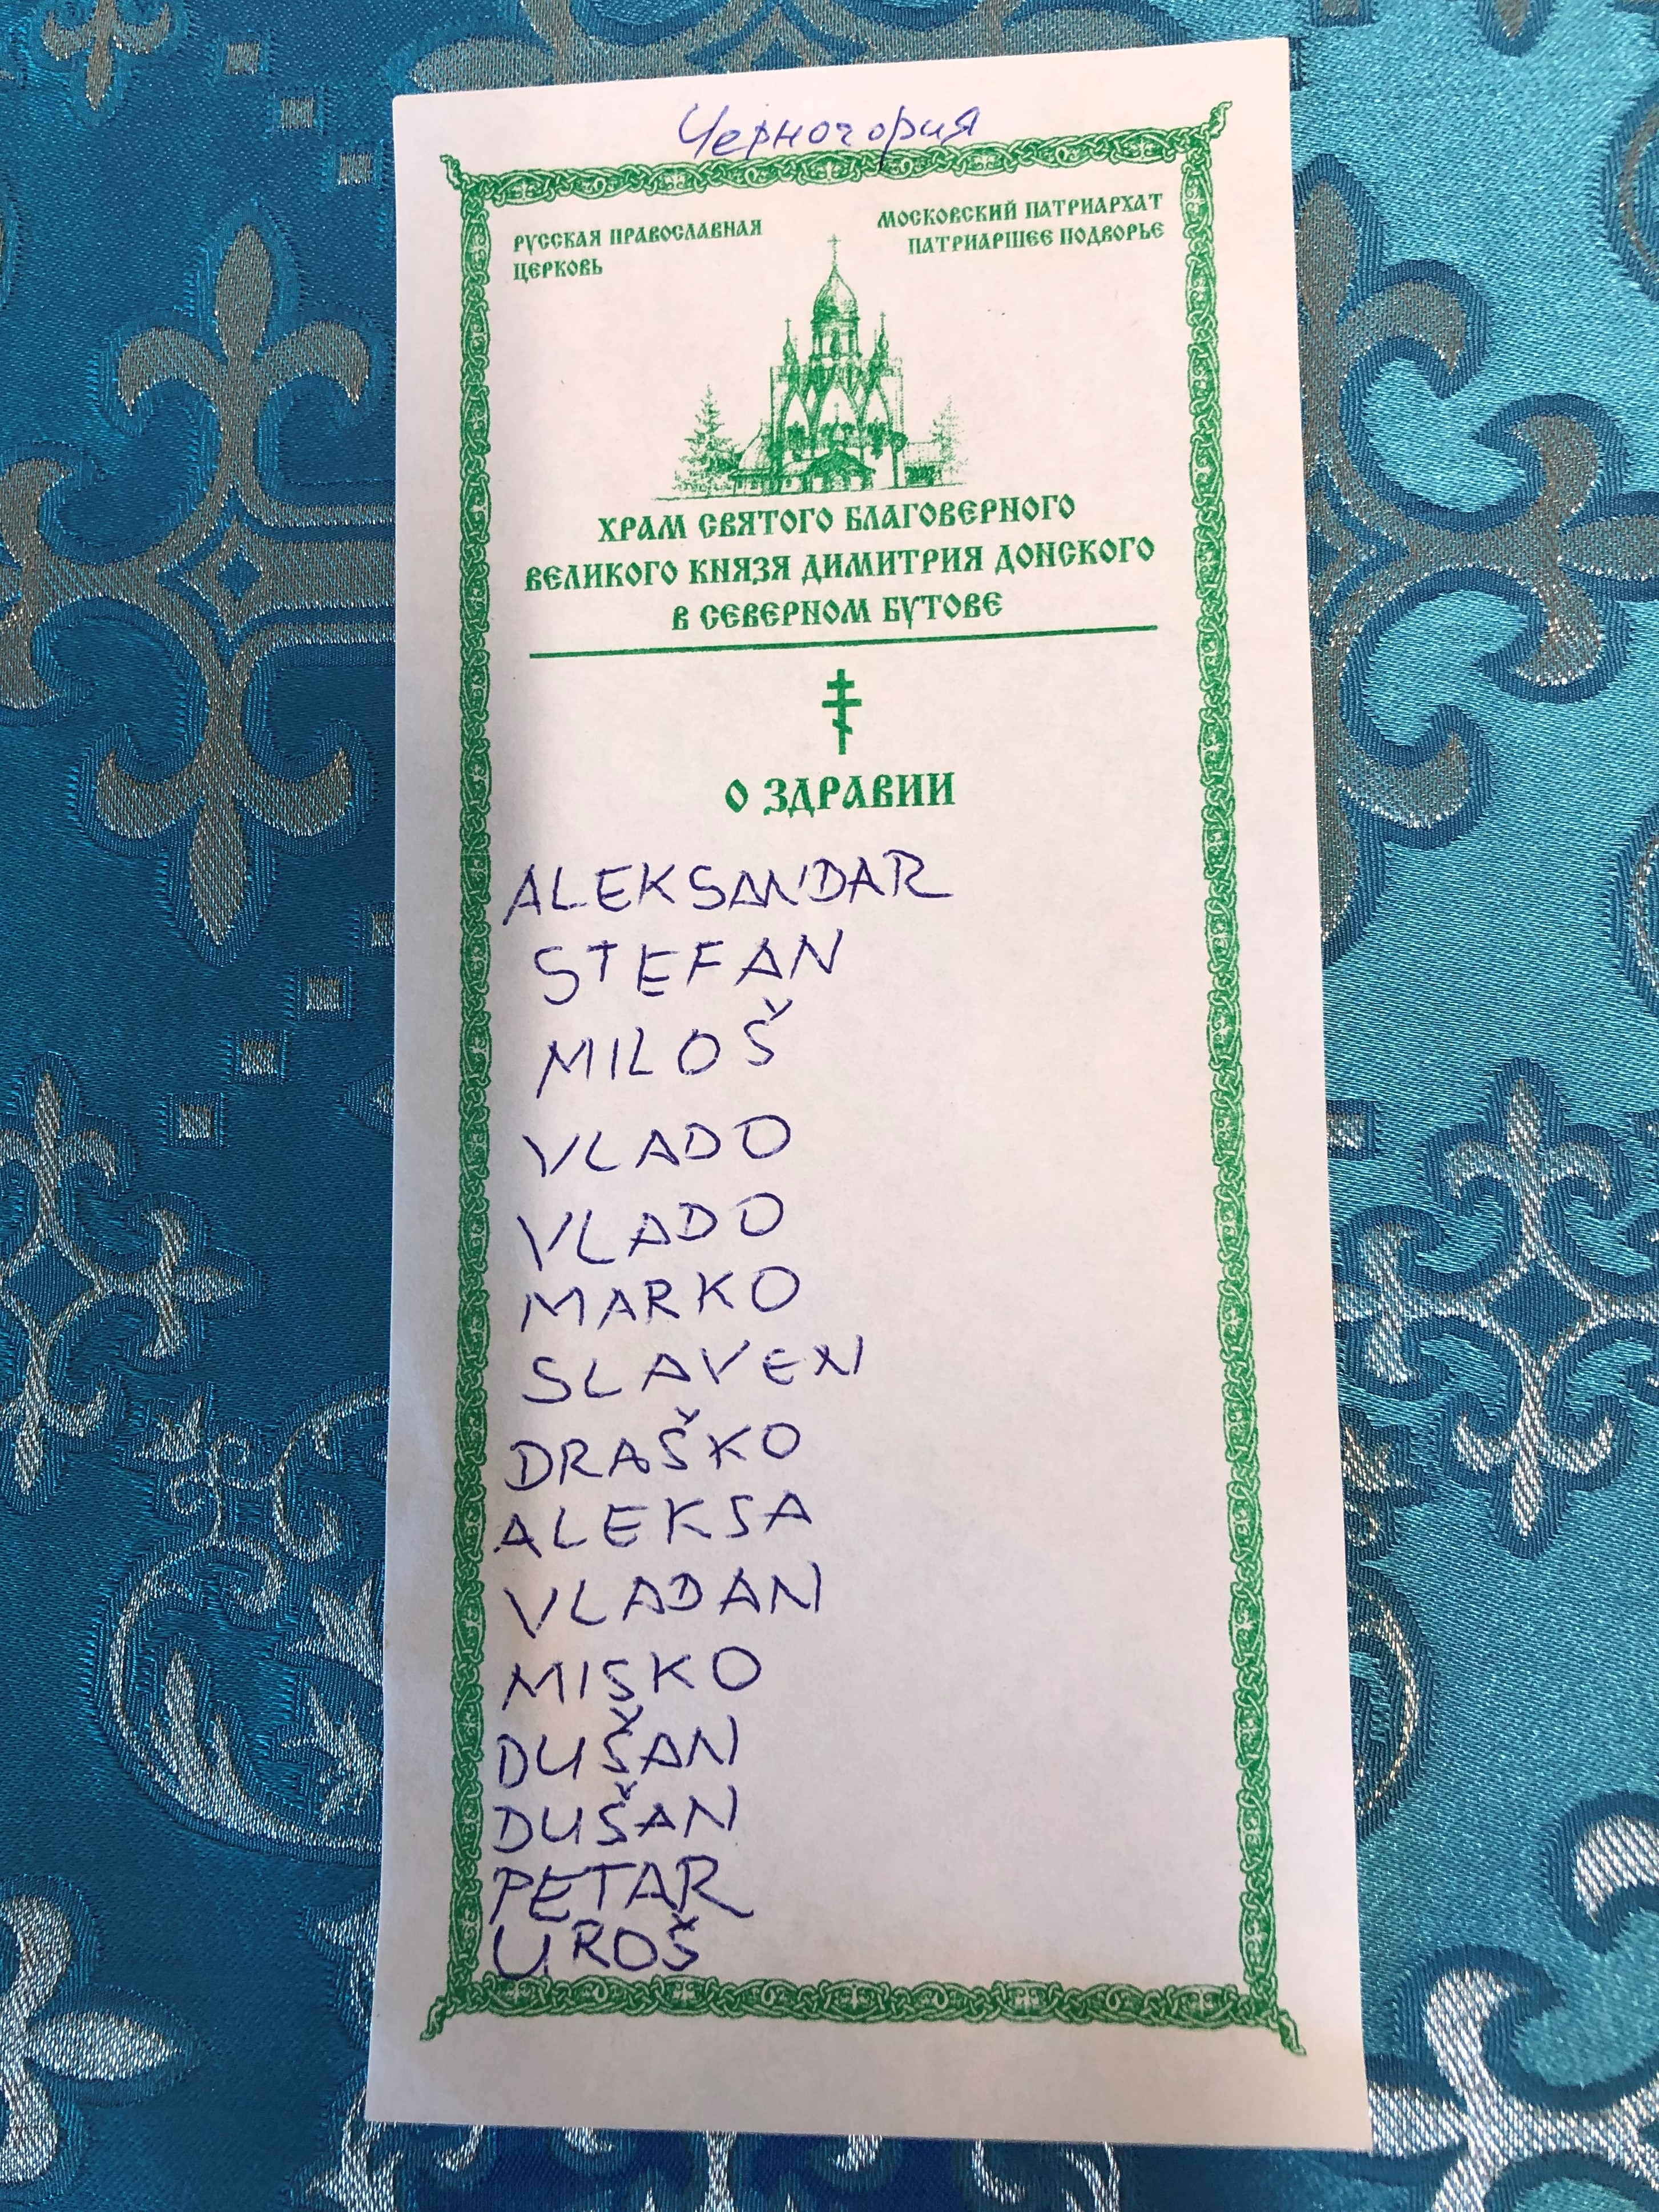 Черногория
РУССКАЯ ПРАВОСЛАВНАЯ
ЦЕРКОВЬ
МОСКОВСКИЙ ПАТРИАРХАТ
ПАТРИАРШЕЕ ПОДВОРЬЕ
ХРАМ СВЯТОГО БЛАГОВЕРНОГО
ВЕЛИКОГО КНЯЗЯ ДИМИТРИЯ ДОНСКОГО
В СЕВЕРНОМ БУТОВЕ
О ЗДРАВИИ
ALEKSANDAR
STEFAN
MILOŠ
VLADO
VLADO
MARKO
SLAVEN
DRAŠKO
ALEKSA
VLADAN
MISKO
DUŠAN
DUŠAN
PETAR
UROŠ